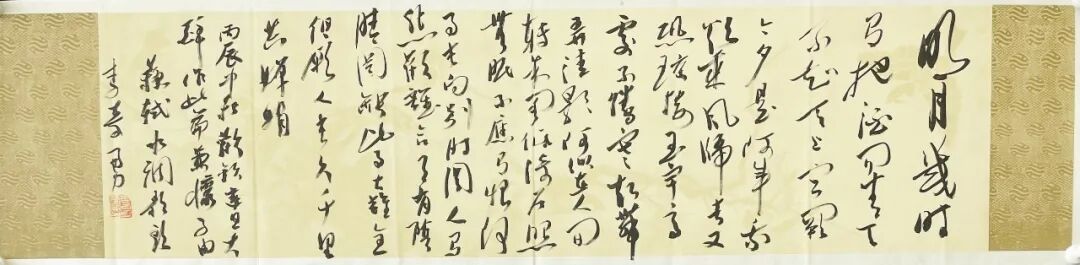 明月幾時
有把酒問青天
不知天上宮闕
今夕是何年我
欲乘風歸去又
恐瓊樓玉宇高
處不勝寒起舞
弄清影何似在人间
轉朱閣低綺户照
無眠不應有恨何
事长向别時圆人有
悲歡離合月有陰
晴圆缺此事古難全
但願人长久千里
共嬋娟
丙辰中秋歡飲達旦大
醉作此篇兼懷子由
蘇軾水調歌頭
李